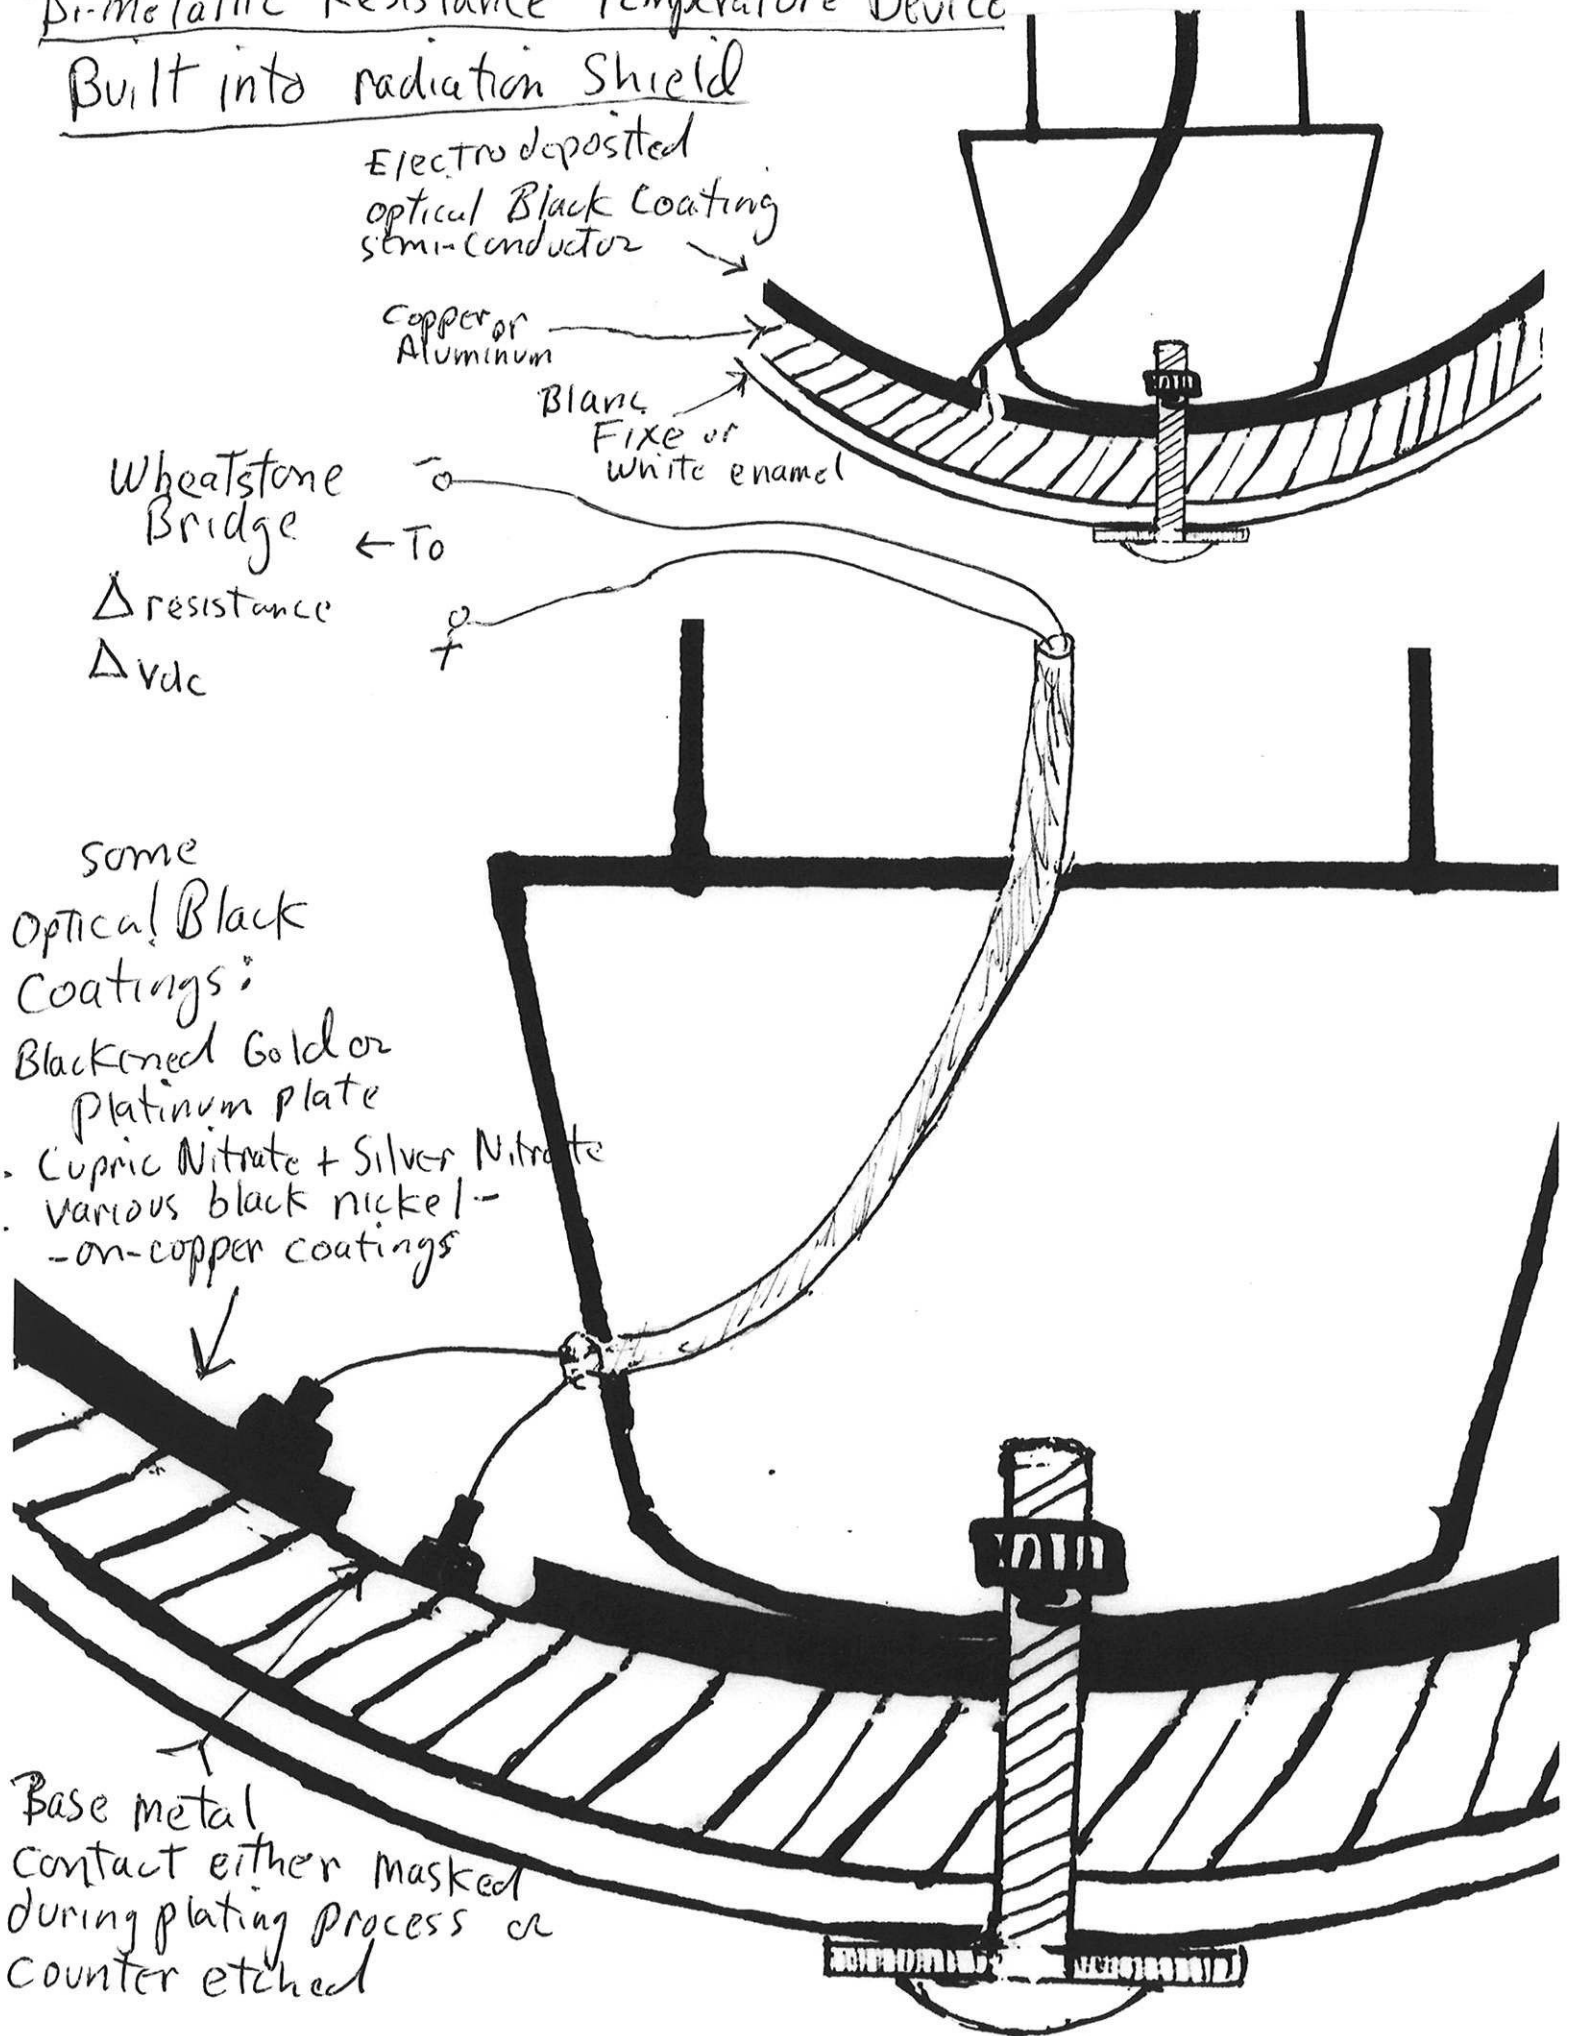 Bi-Metallic Resistance Temperature Device
Built into radiation Shield
Electrodeposited
optical Black Coating
semi-conductor
Copper or
Aluminum
Blanc
Fixe or
white enamel
Wheatstone
Bridge
← To
Δ resistance
Δ Vdc
-
+
some
Optical Black
Coatings:
Blackened Gold or
Platinum plate
. Cupric Nitrate + Silver Nitrate
. various black nickel-
-on-copper coatings
Base metal
contact either masked
during plating process or
counter etched